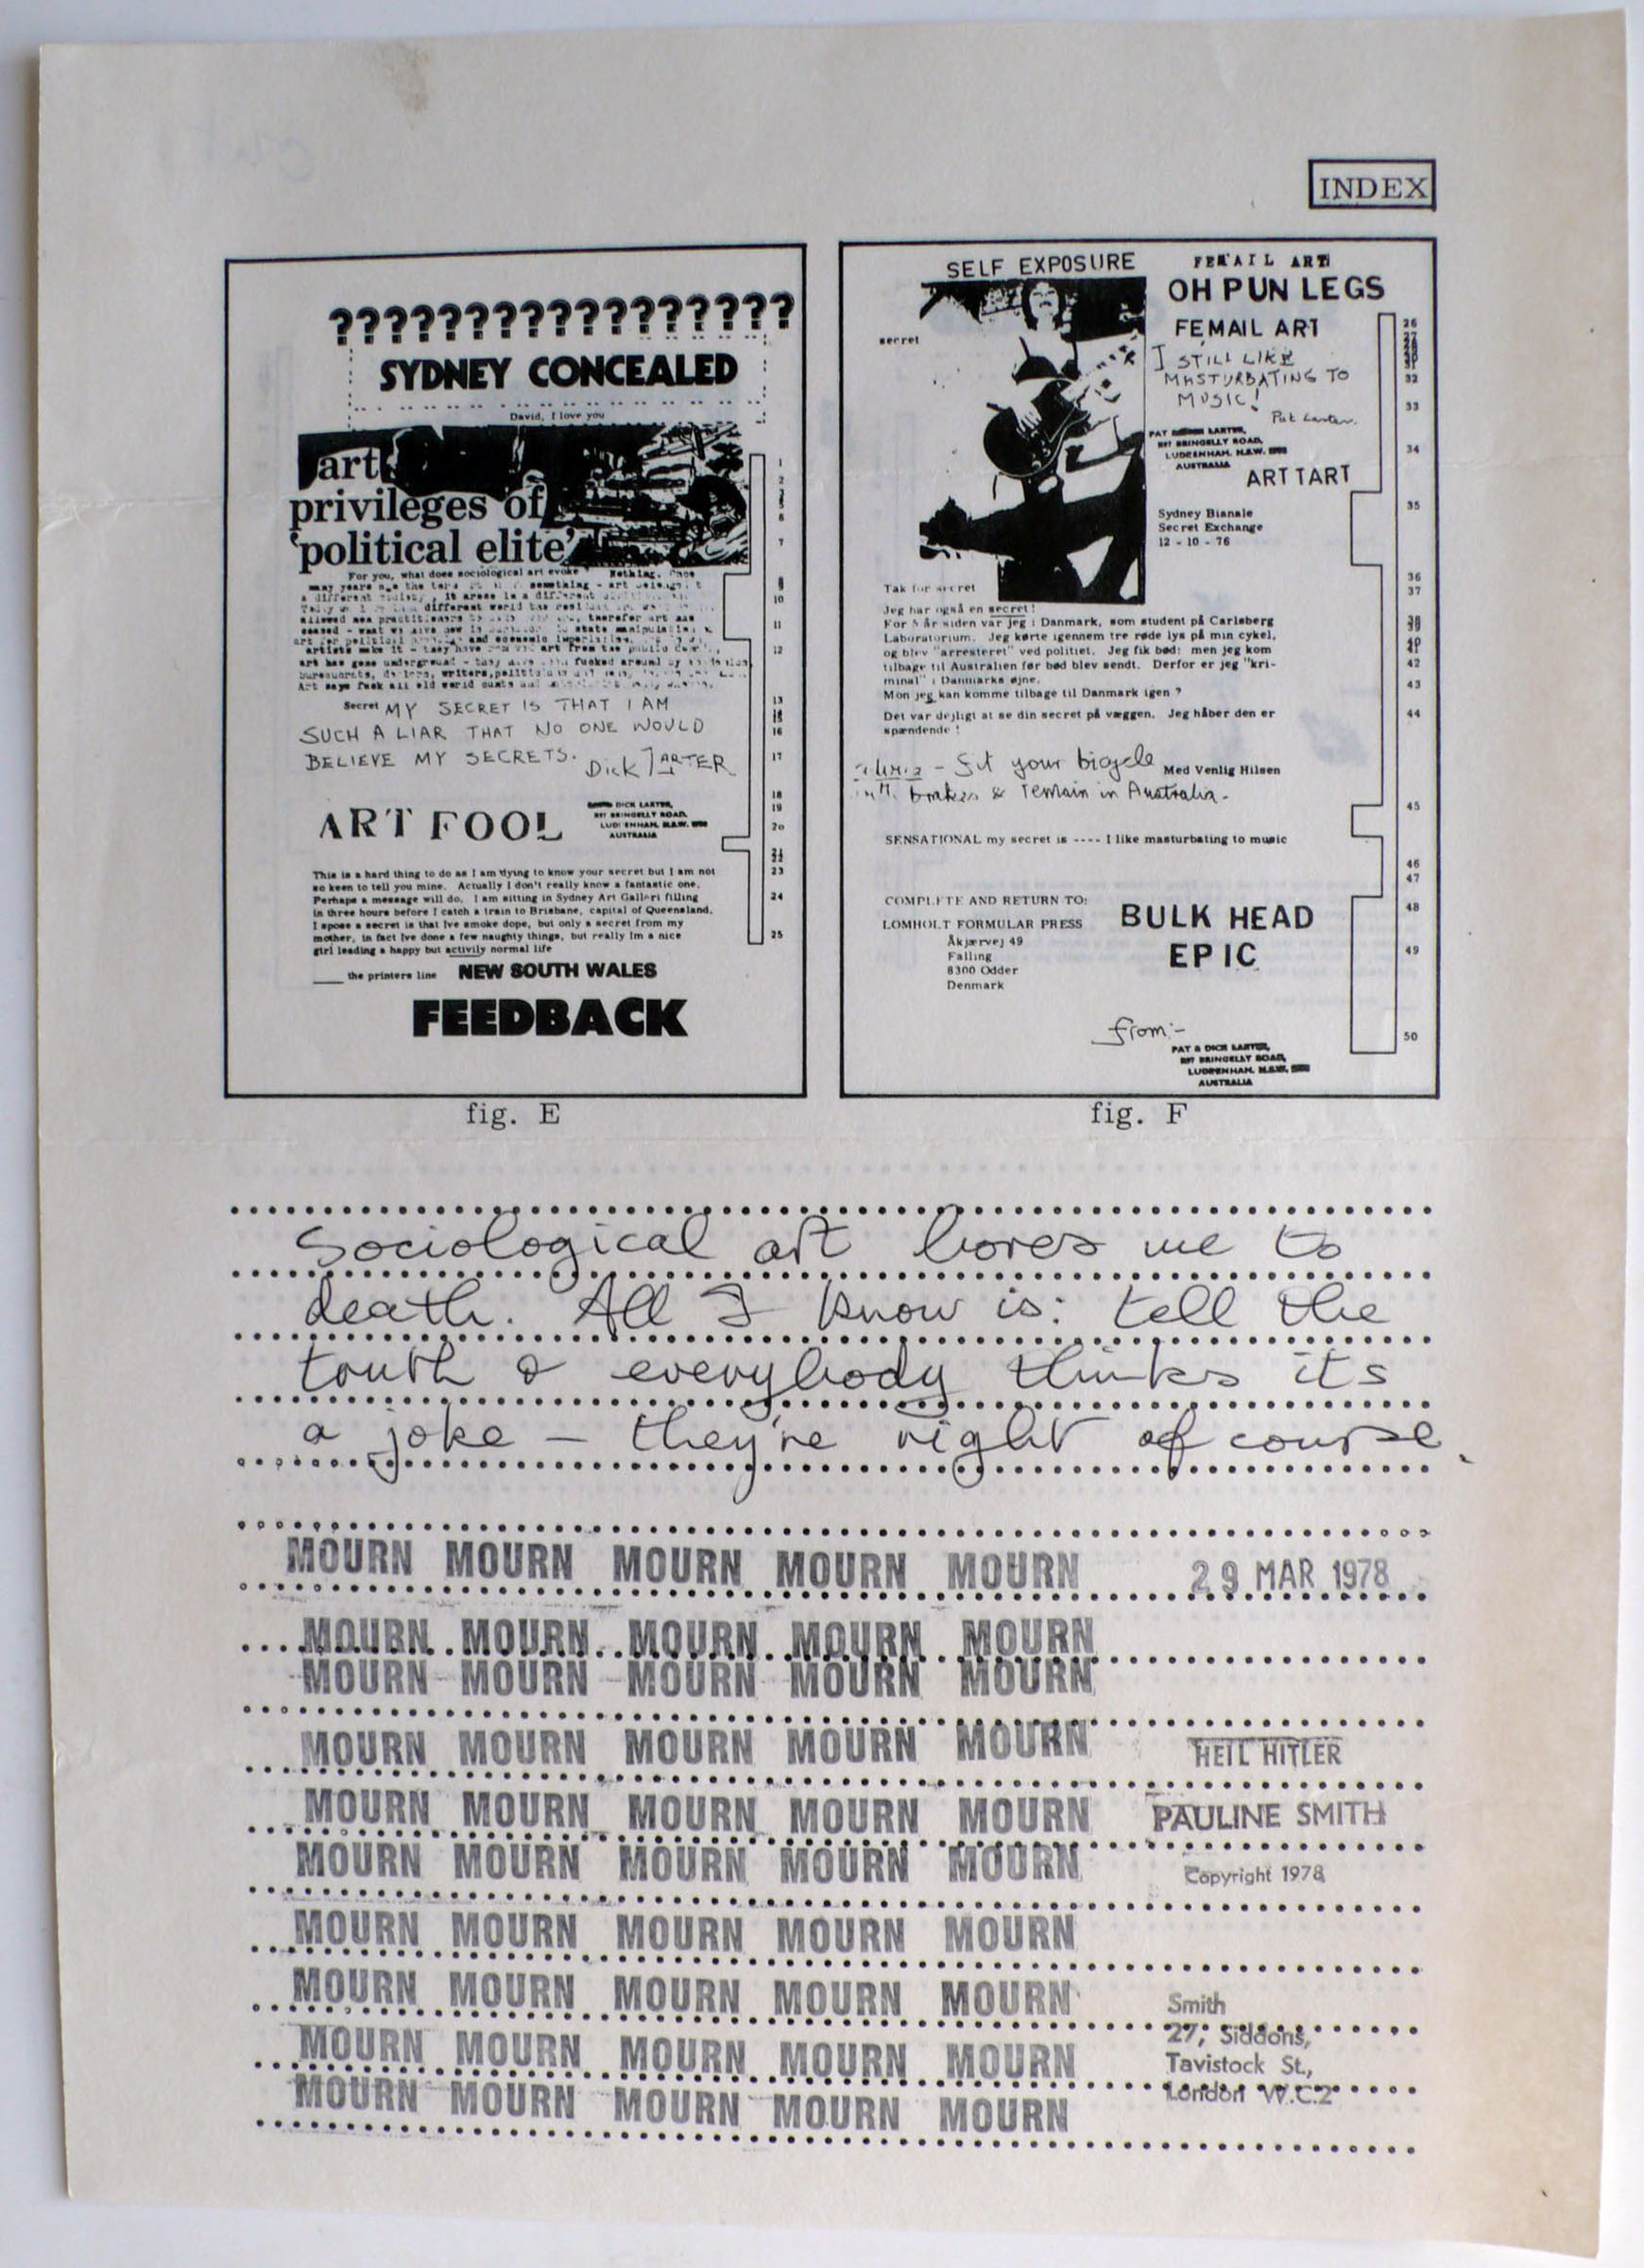 INDEX
?????????????????
SYDNEY CONCEALED
David, I love you
art
privileges of
'political elite'
For you, what does sociological art evoke Nothing. Once
many years ago the
something - art
a different
it arose in a different
different world the
allowed
practitioners
therefor art has
ceased - what we
now is
to state manipulation
art for political
and economic imperialism,
artists make it - they have
art from the public
art has gone underground - they
fucked around by
bureaucrats,
writers,
Art says fuck all old world
and
Secret MY SECRET IS THAT I AM
SUCH A LIAR THAT NO ONE WOULD
BELIEVE MY SECRETS. Dick LARTER
ART FOOL
DICK LARTER,
BRINGELLY ROAD,
LUDDENHAM. N.S.W.
AUSTRALIA
This is a hard thing to do as I am dying to know your secret but I am not
so keen to tell you mine. Actually I don't really know a fantastic one.
Perhaps a message will do. I am sitting in Sydney Art Galleri filling
in three hours before I catch a train to Brisbane, capital of Queensland.
I spose a secret is that Ive smoke dope, but only a secret from my
mother, in fact Ive done a few naughty things, but really Im a nice
girl leading a happy but activily normal life
the printers line NEW SOUTH WALES
FEEDBACK
1
2
6
7
8
10
11
12
13
16
17
18
19
20
23
24
25
fig. E
SELF EXPOSURE
FEMAIL ART
OH PUN LEGS
secret
FEMAIL ART
I STILL LIKE
MASTURBATING TO
MUSIC!
Pat Larter.
PAT LARTER,
BRINGELLY ROAD,
LUDDENHAM. N.S.W.
AUSTRALIA
ART TART
Sydney Bianale
Secret Exchange
12 - 10 - 76
Tak for secret
Jeg har også en secret!
For 5 år siden var jeg i Danmark, som student på Carlsberg
Laboratorium. Jeg kørte igennem tre røde lys på min cykel,
og blev "arresteret" ved politiet. Jeg fik bød: men jeg kom
tilbage til Australien før bød blev sendt. Derfor er jeg "kri-
minal" i Danmarks øjne.
Mon jeg kan komme tilbage til Danmark igen ?
Det var dejligt at se din secret på væggen. Jeg håber den er
spændende !
- Sit your bicycle Med Venlig Hilsen
brakes & remain in Australia-
SENSATIONAL my secret is ---- I like masturbating to music
COMPLETE AND RETURN TO:
LOMHOLT FORMULAR PRESS
Åkjærvej 49
Falling
8300 Odder
Denmark
BULK HEAD
EPIC
from:-
PAT & DICK LARTER,
BRINGELLY ROAD,
LUDDENHAM. N.S.W.
AUSTRALIA
26
32
33
34
35
36
37
42
43
44
45
46
47
48
49
50
fig. F
Sociological art bores me to
death. All I know is: tell the
truth & everybody thinks its
a joke - they're right of course.
MOURN MOURN MOURN MOURN MOURN 29 MAR 1978
MOURN MOURN MOURN MOURN MOURN
MOURN MOURN MOURN MOURN MOURN
MOURN MOURN MOURN MOURN MOURN HEIL HITLER
MOURN MOURN MOURN MOURN MOURN PAULINE SMITH
MOURN MOURN MOURN MOURN MOURN Copyright 1978
MOURN MOURN MOURN MOURN MOURN
MOURN MOURN MOURN MOURN MOURN Smith
27, Siddons,
MOURN MOURN MOURN MOURN MOURN Tavistock St.,
MOURN MOURN MOURN MOURN MOURN London W.C.2